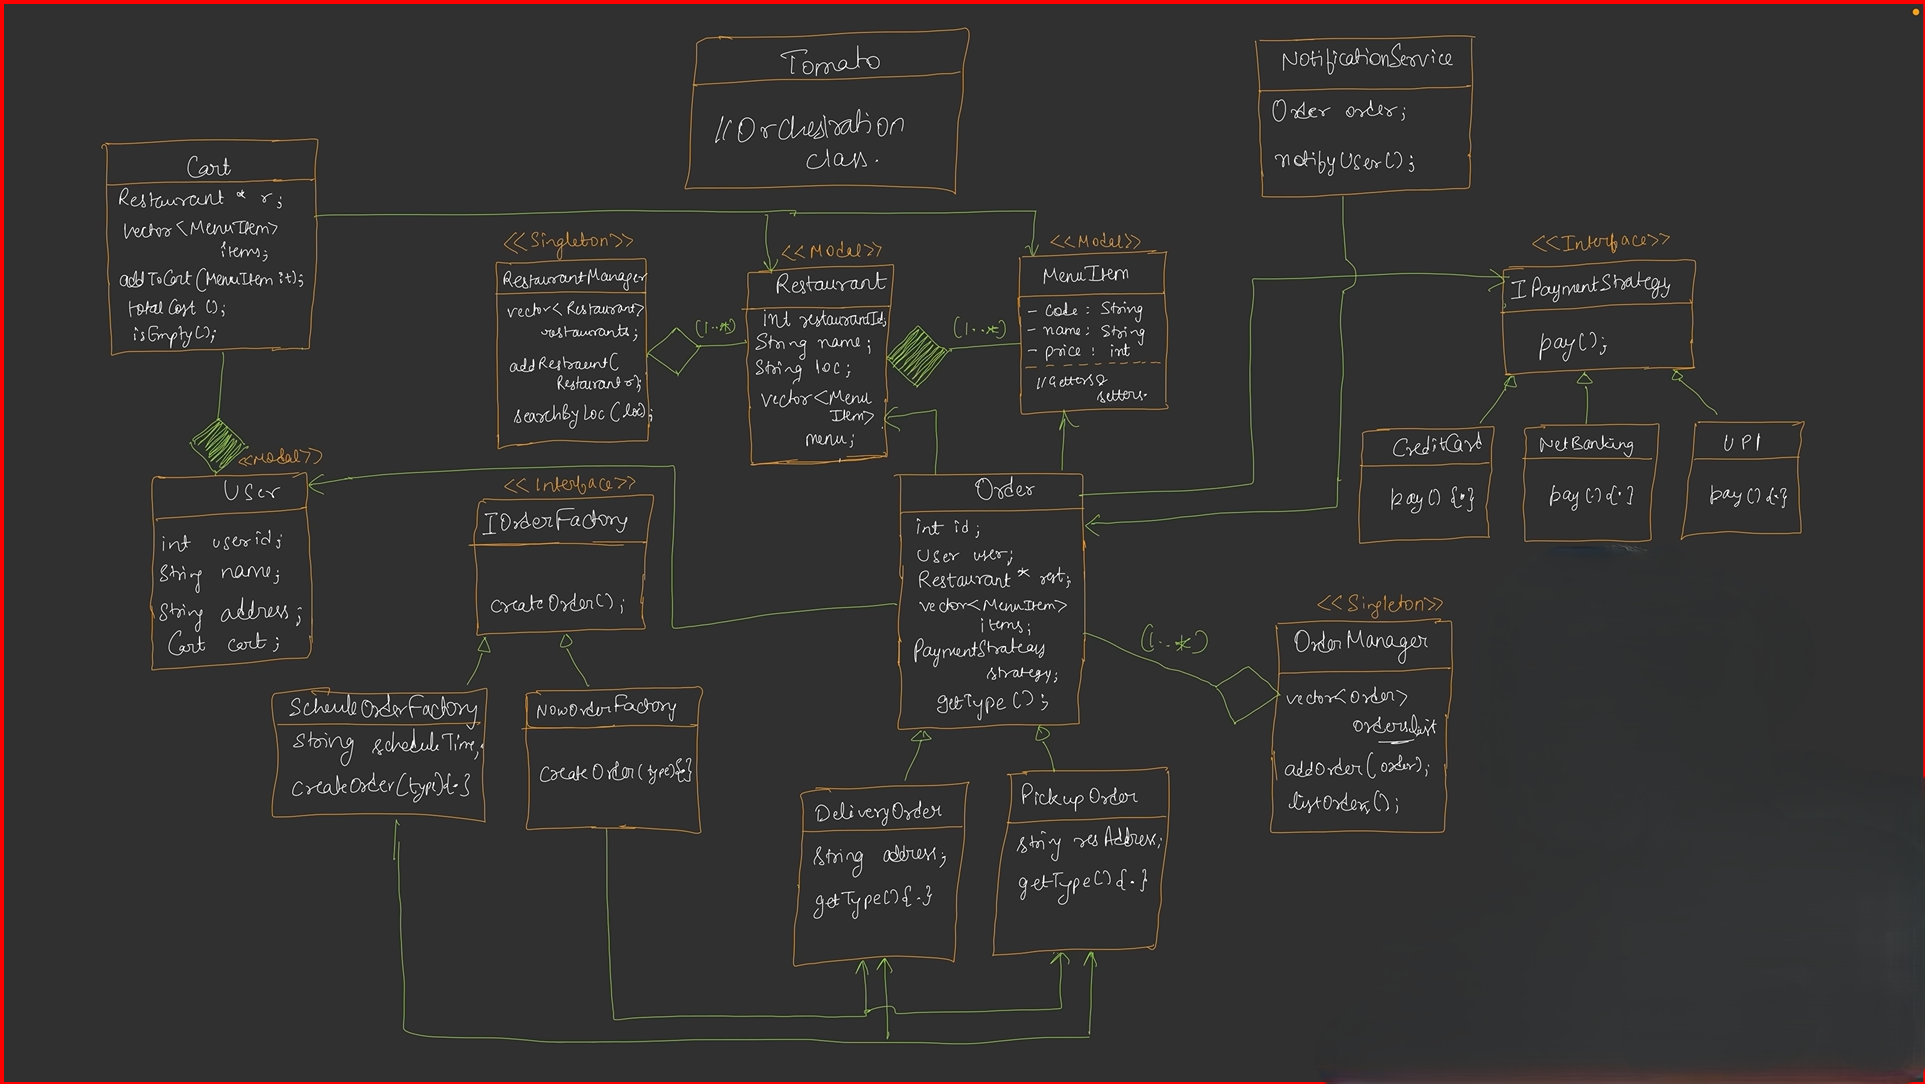 Tomato
//Orchestration
class.
NotificationService
Order order;
notifyUser();
Cart
Restaurant * r;
vector<MenuItem>
items;
addToCart(MenuItem it);
total Cost ();
isEmpty();
<<Singleton>>
RestaurantManager
vector<Restaurant>
restaurants;
addRestraunt(
Restaurant r);
searchByLoc(loc);
(1..*)
<<Model>>
Restaurant
int restaurantId;
String name;
String loc;
vector<Menu
Item>
menu;
(1..*)
<<Model>>
MenuItem
- code : String
- name : String
- price : int
//Getters &
setters.
<<Interface>>
IPaymentStrategy
pay();
CreditCard
pay() {.}
NetBanking
pay() {.}
UPI
pay() {.}
<<Model>>
User
int userid;
String name;
String address;
Cart cart;
<<Interface>>
IOrderFactory
createOrder();
ScheuleOrderFactory
String scheduleTime;
createOrder(type){.}
NowOrderFactory
createOrder(type){.}
Order
int id;
User user;
Restaurant * rest;
vector<MenuItem>
items;
PaymentStrategy
strategy;
getType();
(1..*)
<<Singleton>>
OrderManager
vector<Order>
orderslist
addOrder(order);
listOrders();
DeliveryOrder
String address;
getType(){.}
PickupOrder
string resAddress;
getType(){.}